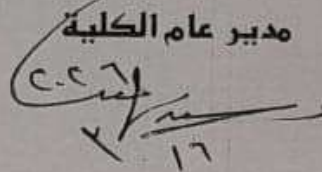 مدير عام الكلية
٢٠٢٦
٣
١٦